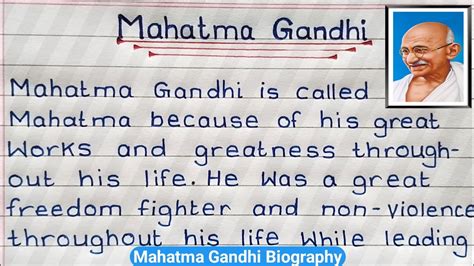 Mahatma Gandhi
Mahatma Gandhi is called
Mahatma because of his great
Works and greatness through-
out his life. He was a great
freedom fighter and non-violence
throughout his life While leading
Mahatma Gandhi Biography